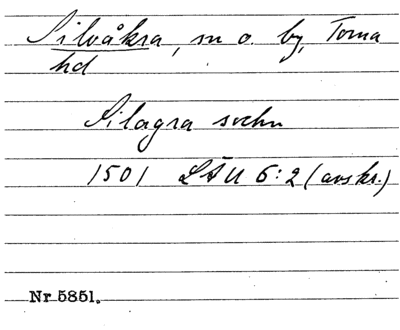 Silvåkra, sn o. by, Torna
hd
Silagra sochn
1501 LÄU 6:2 (avskr.)
Nr 5851.